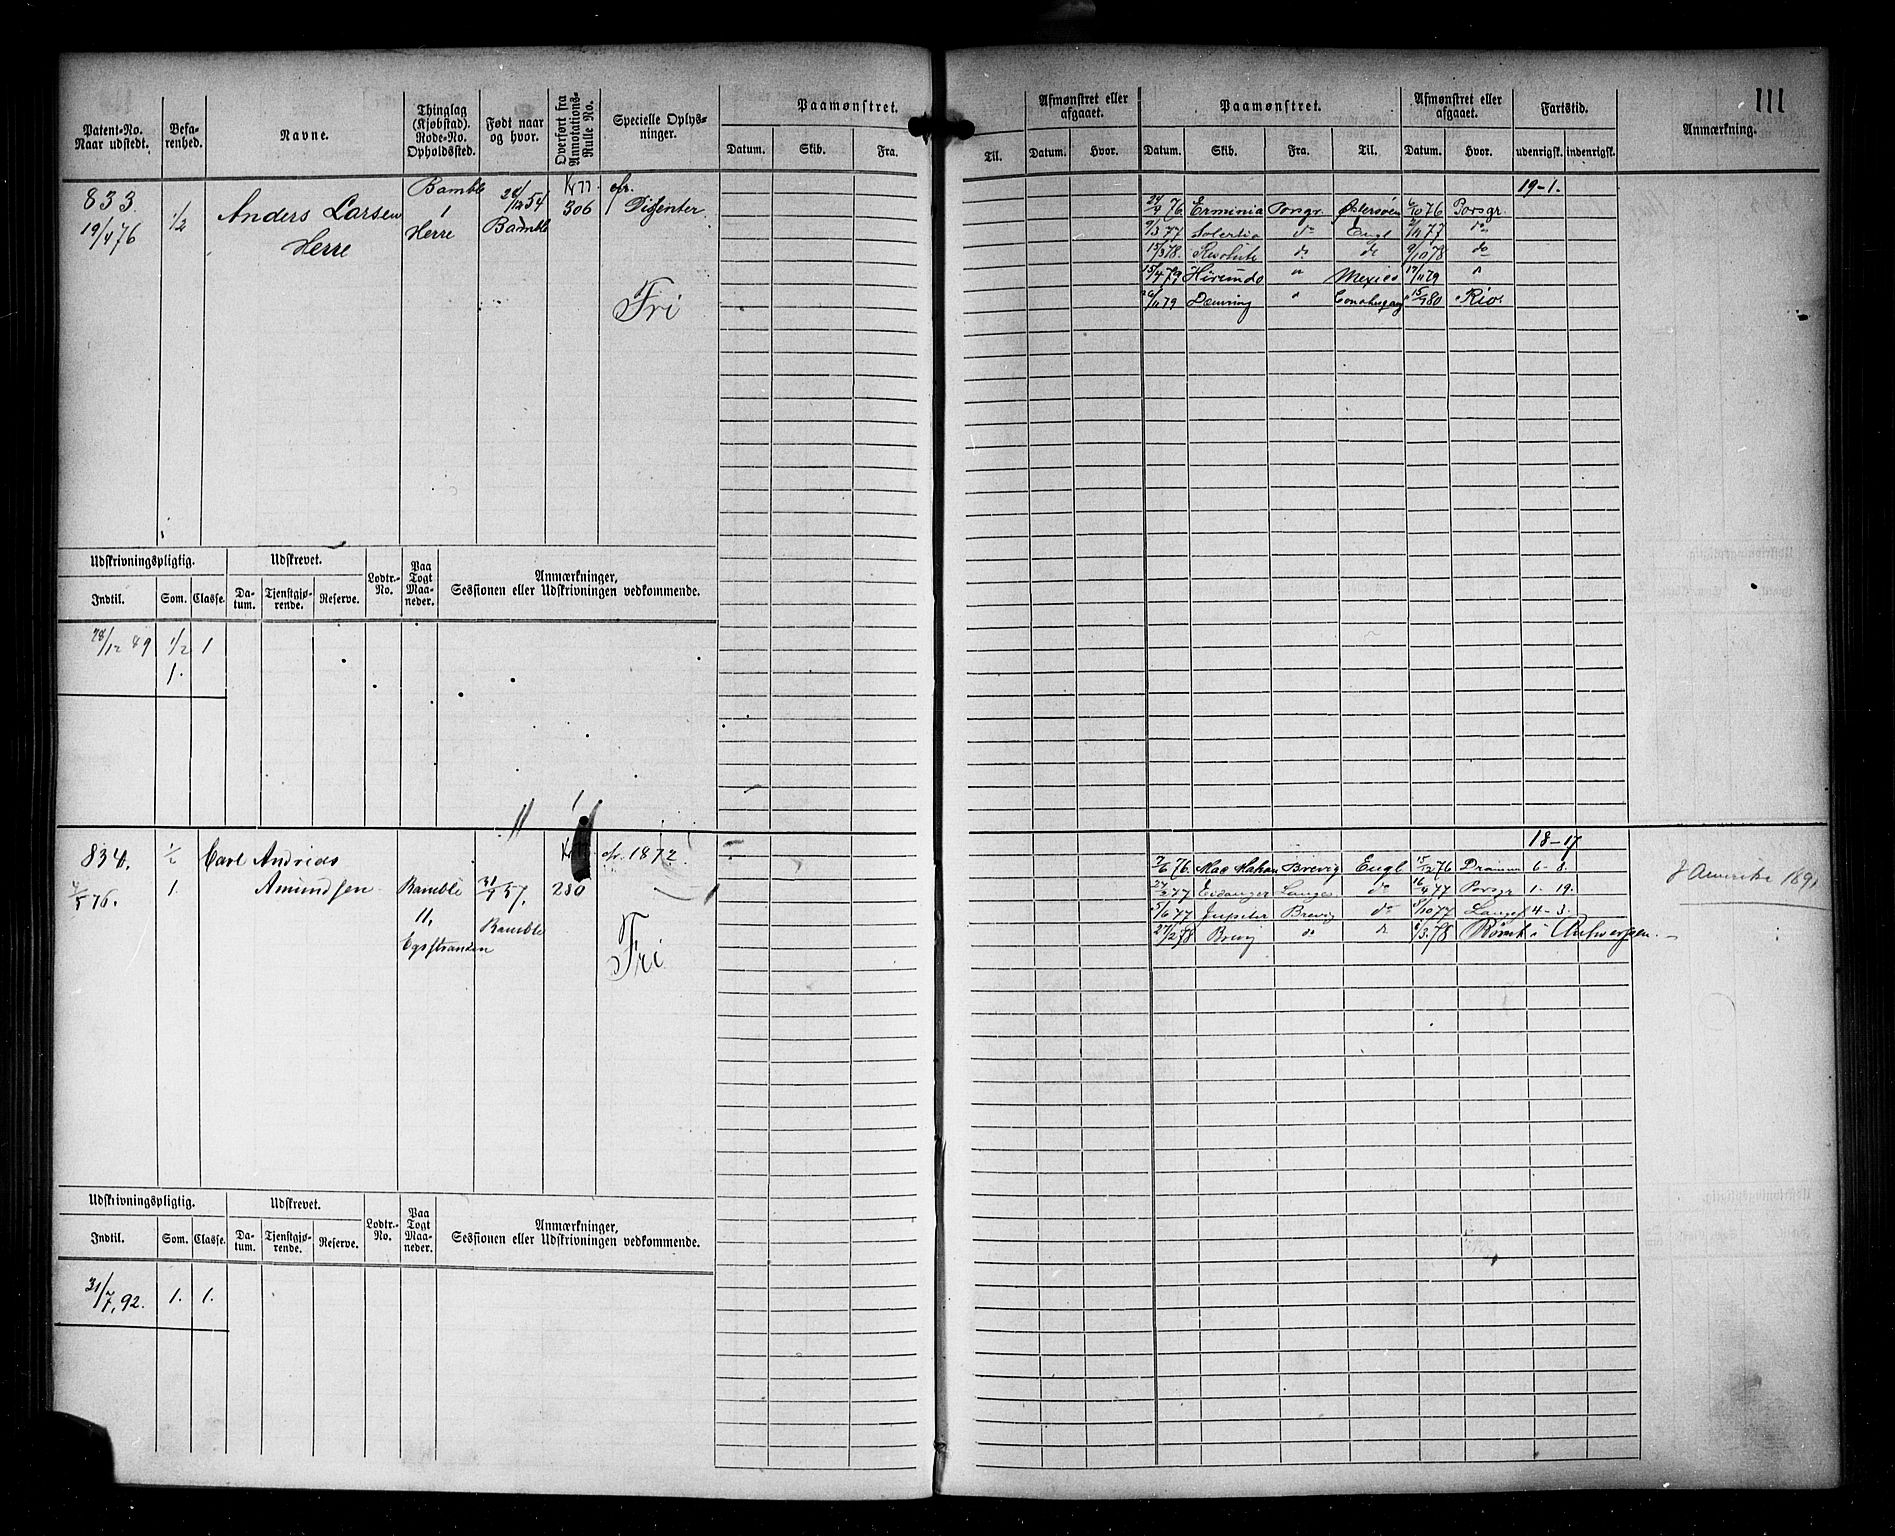 111
Patent-No. Naar udstedt.
Befarenhed.
Navne.
Thinglag (Kjøbstad). Rode-No. Opholdssted.
Født naar og hvor.
Overført fra Annotations-Rulle No.
Specielle Oplysninger.
Paamønstret.
Datum. Skib. Fra. Til.
Afmønstret eller afgaaet.
Datum. Hvor.
Paamønstret.
Datum. Skib. Fra. Til.
Afmønstret eller afgaaet.
Datum. Hvor.
Fartstid.
udenrigsk. indenrigsk.
Anmærkning.
833.
19/4 76
1/2
Anders Larsen
Herre
Bamble
1
Herre
28/12 54
Bamble
306
cfr.
Disenter
Fri
19-1.
76. Erminia Porsgr Østersøen 76 Porsgr.
9/3 77 Solertia do Engl 77 do
15/3 78. Resolute do do 9/10 78 do
15/4 79 Hirundo " Mexico 79 "
79 " 80 Rio.
Udskrivningspligtig.
Indtil. Som. Classe.
Udskrevet.
Datum. Tjenstgjørende. Reserve.
Lodtr.-No.
Paa Togt Maaneder.
Anmærkninger, Sessionen eller Udskrivningen vedkommende.
28/12 89 1/2 1
1.
834.
5 76.
1/2
1.
Carl Andreas
Amundsen
Bamble
11,
31/7 57.
Bamble
280
cfr. 1872.
Fri
18-17
76. Mac Mahon Brevig Engl 76 Dramm 6-8.
77 Eidanger Langes do 77 Porsgr 1-19.
5/6 77 Jupiter Brevig do 8/10 77 Langes 4-3.
27/2 78 Brevig do do 78 Rømt i Antwerpen.
f Amerika 189
Udskrivningspligtig.
Indtil. Som. Classe.
Udskrevet.
Datum. Tjenstgjørende. Reserve.
Lodtr.-No.
Paa Togt Maaneder.
Anmærkninger, Sessionen eller Udskrivningen vedkommende.
31/7, 92. 1. 1.